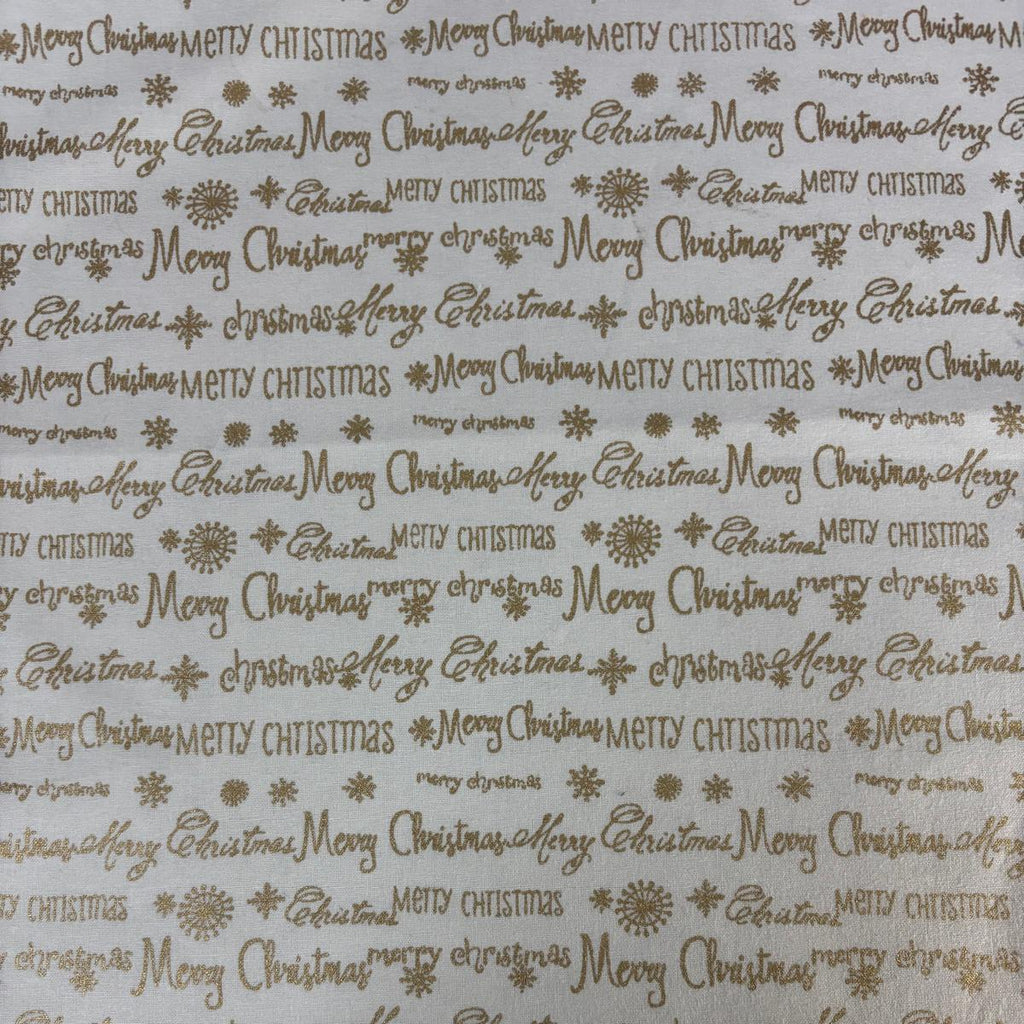 Merry Christmas MERRY CHRISTMAS Merry Christmas MERRY CHRISTMAS Merry Christmas
merry christmas merry christmas merry christmas
Christmas Merry Christmas Merry Christmas Merry Christmas Merry Christmas Merry
CHRISTMAS Christmas MERRY CHRISTMAS Christmas MERRY CHRISTMAS
christmas Merry Christmas merry christmas Merry Christmas merry christmas
Christmas christmas Merry Christmas christmas Merry Christmas
Merry Christmas MERRY CHRISTMAS Merry Christmas MERRY CHRISTMAS Merry Christmas
merry christmas merry christmas merry christmas
Christmas Merry Christmas Merry Christmas Merry Christmas Merry Christmas Merry
CHRISTMAS Christmas MERRY CHRISTMAS Christmas MERRY CHRISTMAS
christmas Merry Christmas merry christmas Merry Christmas merry christmas
Christmas christmas Merry Christmas christmas Merry Christmas
Merry Christmas MERRY CHRISTMAS Merry Christmas MERRY CHRISTMAS Merry Christmas
merry christmas merry christmas merry christmas
Christmas Merry Christmas Merry Christmas Merry Christmas Merry
CHRISTMAS Christmas MERRY CHRISTMAS Christmas MERRY CHRISTMAS
christmas Merry Christmas merry christmas Merry Christmas merry christmas